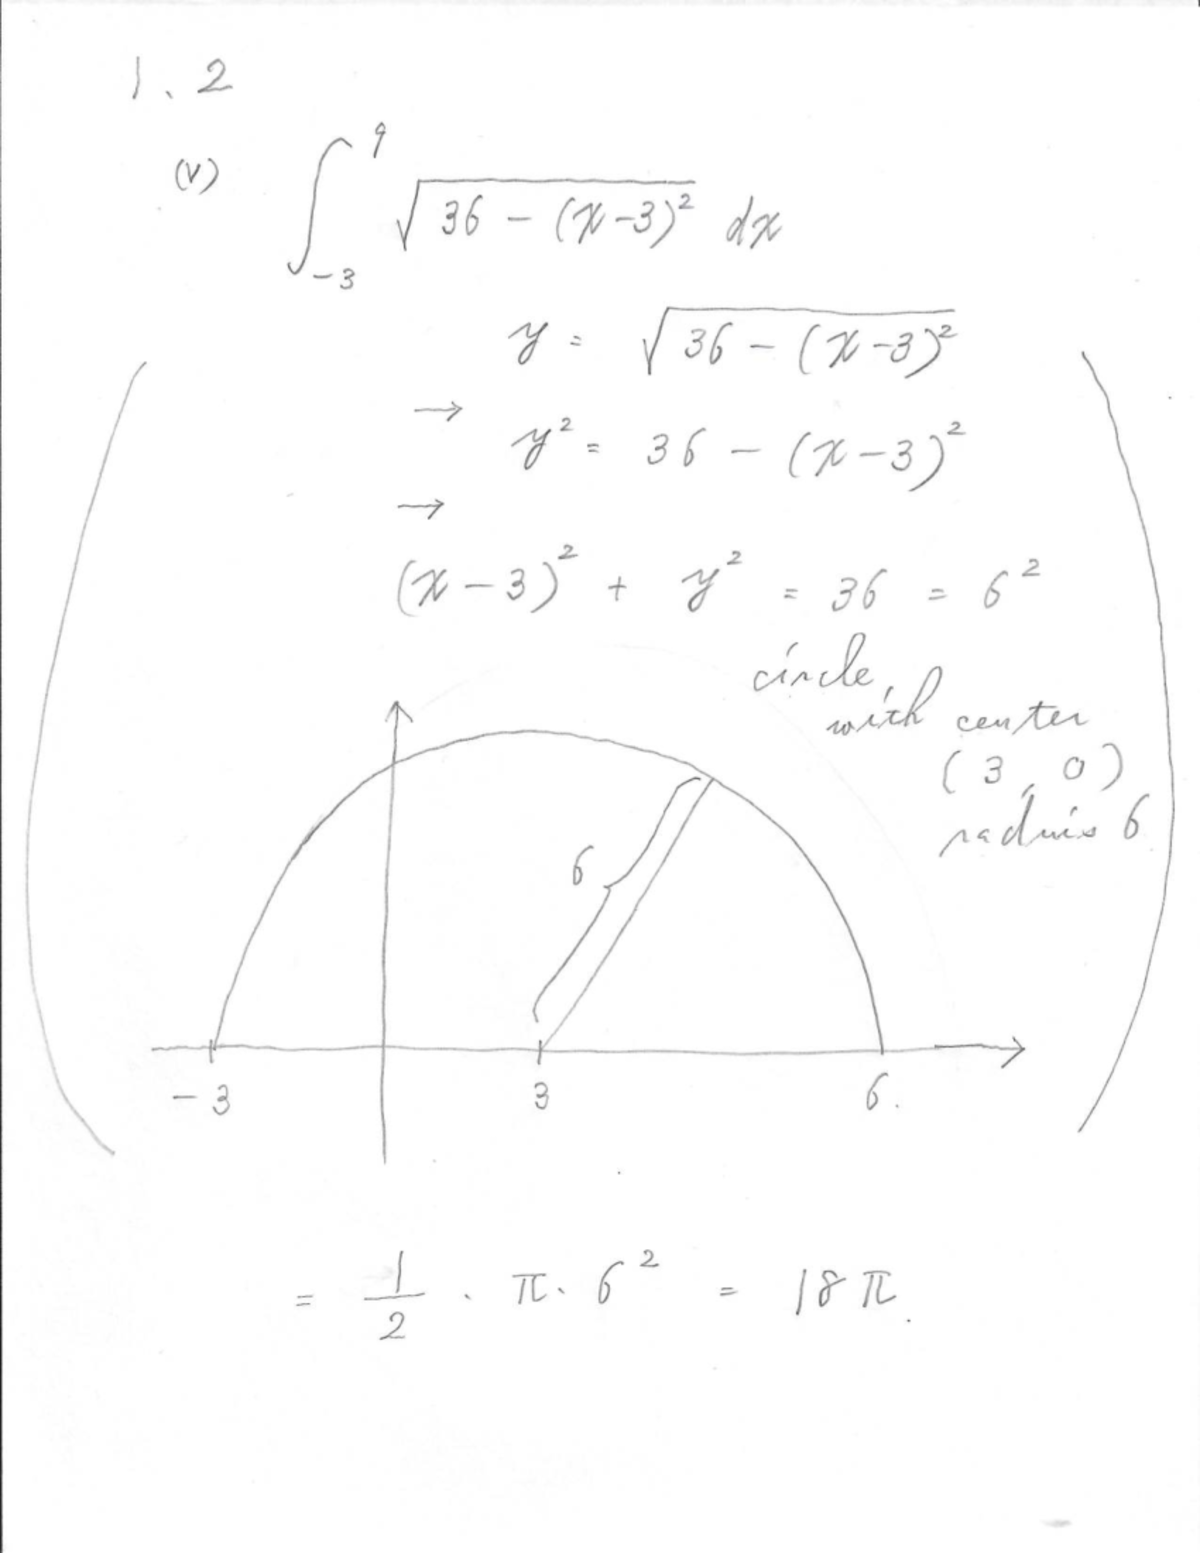 1、2
(v) ∫_{-3}^{9} √(36 - (x-3)²) dx
y = √(36 - (x-3)²)
→
y² = 36 - (x-3)²
→
(x-3)² + y² = 36 = 6²
circle,
with center
(3, 0)
radius 6
6
-3 3 6.
= 1/2 · π · 6² = 18π.